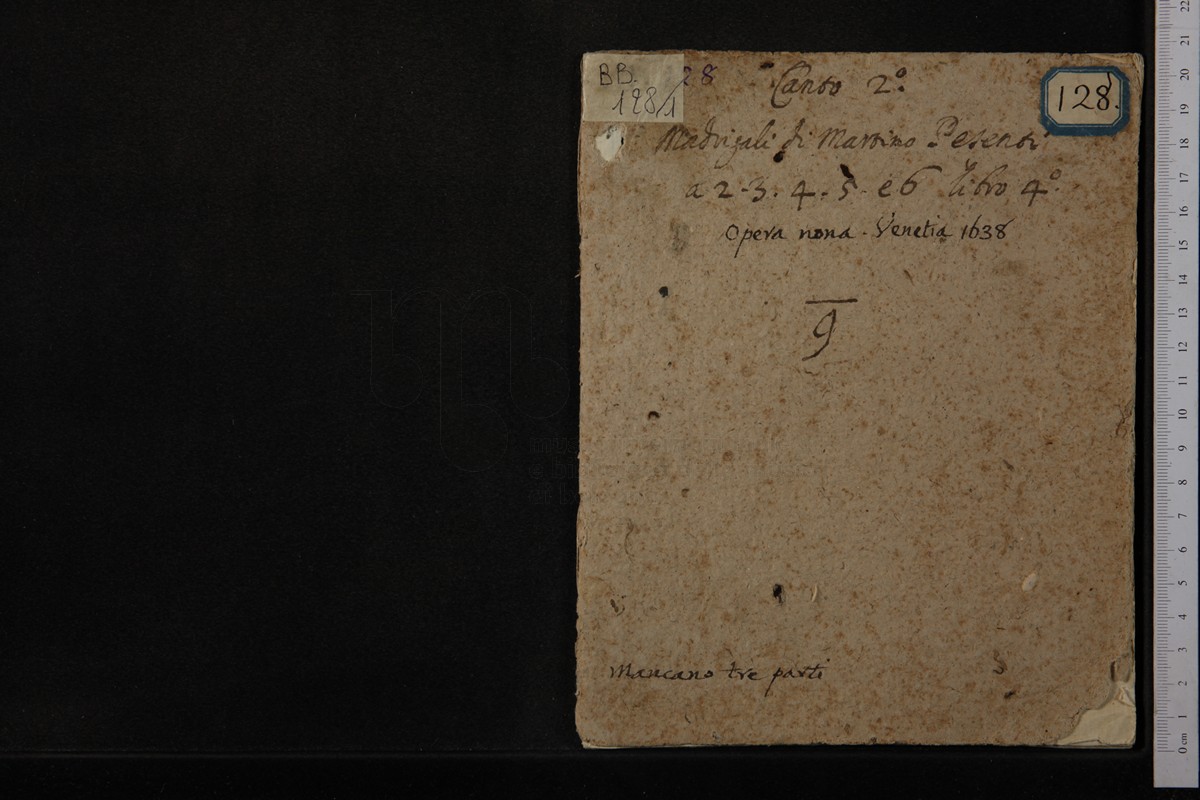 BB. 28
128/1
Canto 2º.
128.
Madrigali di Martino Pesenti
a 2. 3. 4. 5. e 6 libro 4º.
Opera nona. Venetia 1638
9
Mancano tre parti
22
21
20
19
18
17
16
15
14
13
12
11
10
9
8
7
6
5
4
3
2
1
0 cm